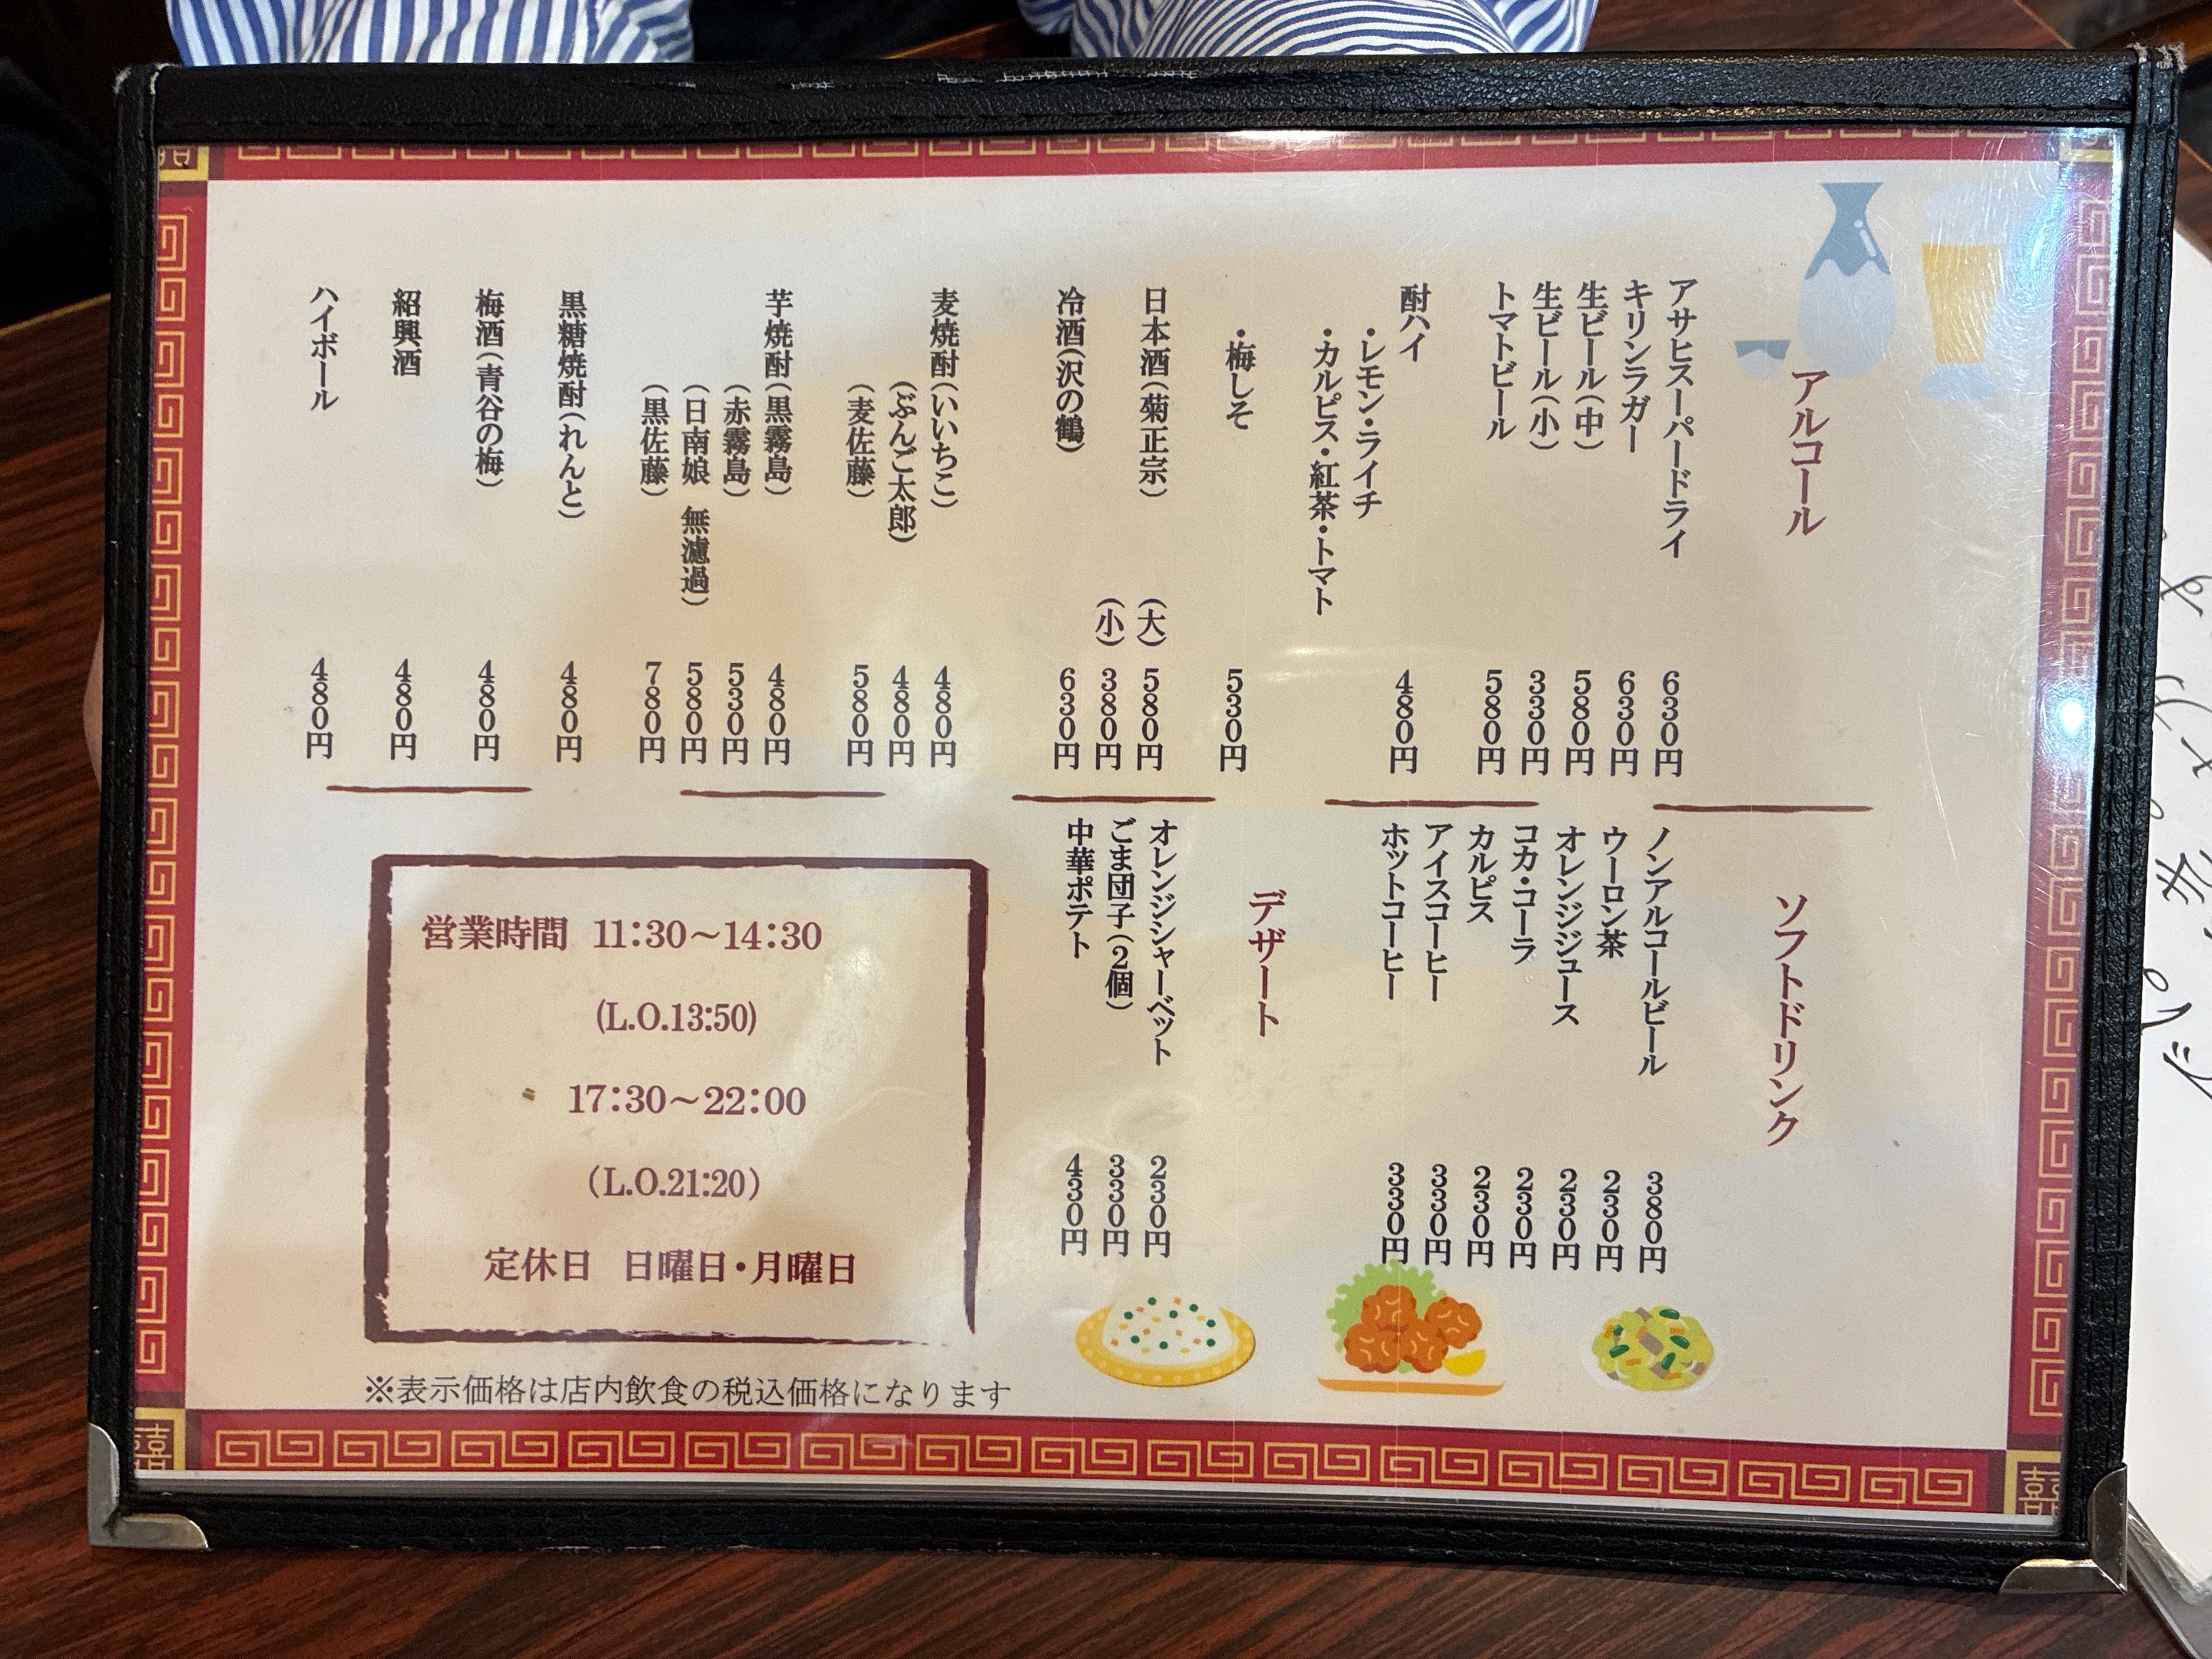 アルコール
アサヒスーパードライ 630円
キリンラガー 630円
生ビール(中) 580円
生ビール(小) 330円
トマトビール 580円
酎ハイ 480円
・レモン・ライチ
・カルピス・紅茶・トマト
・梅しそ 530円
日本酒(菊正宗) (大) 580円
(小) 380円
冷酒(沢の鶴) 630円
麦焼酎(いいちこ) 480円
(ぶんご太郎) 480円
(麦佐藤) 580円
芋焼酎(黒霧島) 480円
(赤霧島) 530円
(日南娘 無濾過) 580円
(黒佐藤) 780円
黒糖焼酎(れんと) 480円
梅酒(青谷の梅) 480円
紹興酒 480円
ハイボール 480円
ソフトドリンク
ノンアルコールビール 380円
ウーロン茶 230円
オレンジジュース 230円
コカ・コーラ 230円
カルピス 230円
アイスコーヒー 330円
ホットコーヒー 330円
デザート
オレンジシャーベット 230円
ごま団子(2個) 330円
中華ポテト 430円
営業時間 11:30～14:30
(L.O.13:50)
17:30～22:00
(L.O.21:20)
定休日 日曜日・月曜日
※表示価格は店内飲食の税込価格になります